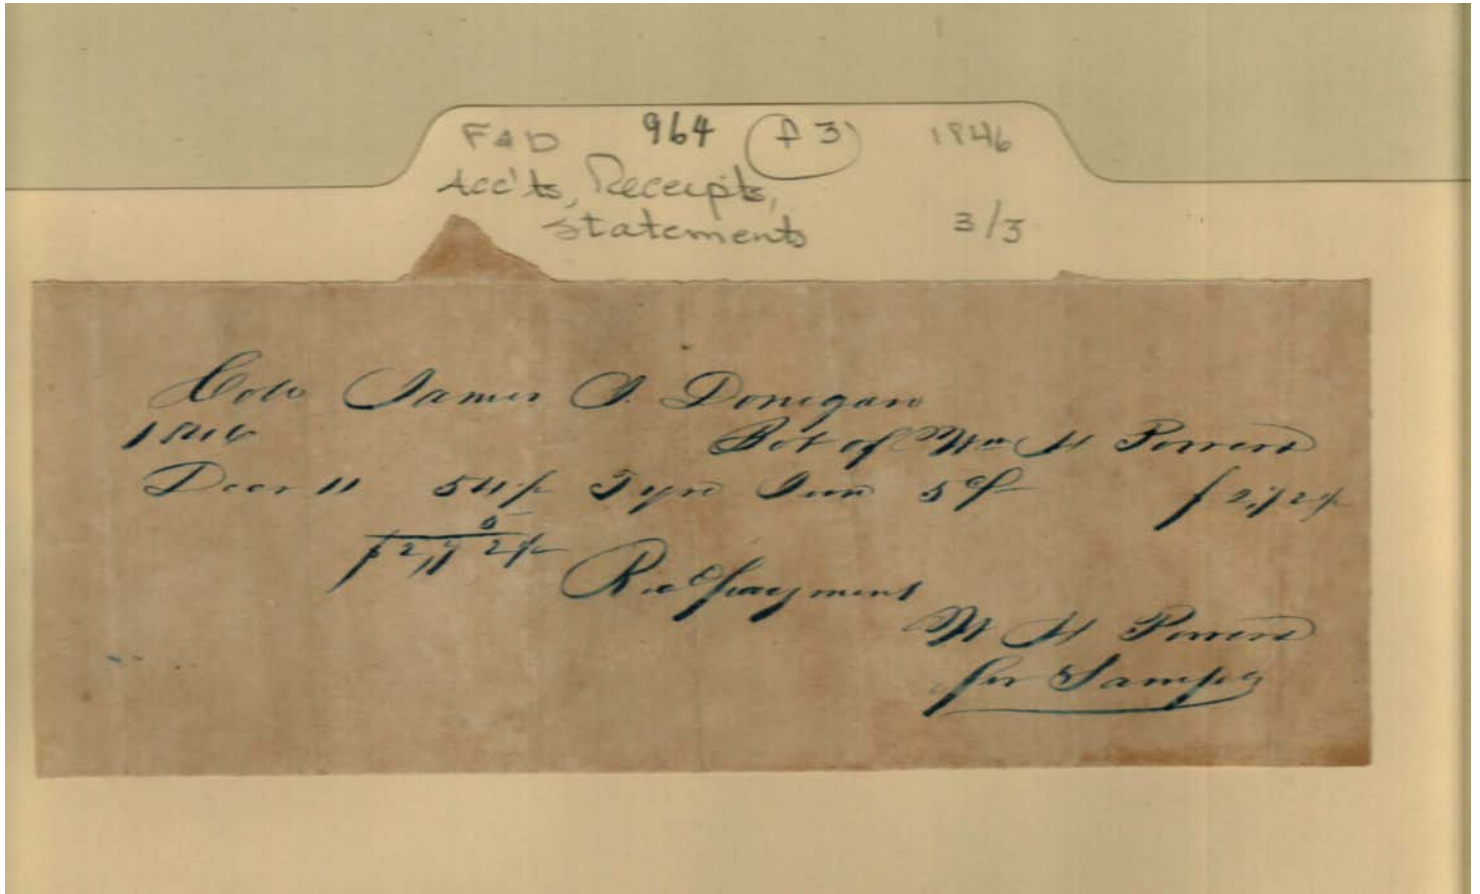 F&D 964 (f 3) 1846
Acc'ts, Receipts,
Statements 3/3
Colo James J. Donegan
1846 Bot of Wm H Powers
Decr 11 54½ Tyre Iron 5c $2,72½
5
$2,72½
Recd payment
W H Powers
for Sample